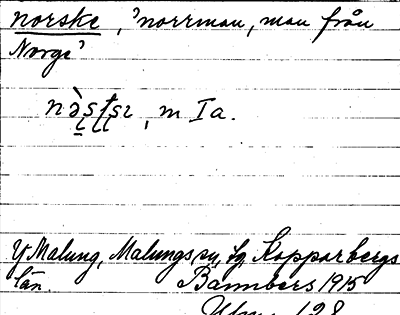 norske, 'norrman, man från
Norge'
m Ia.
Malung, Malungs Kopparbergs
län. Bannbers 1915
128